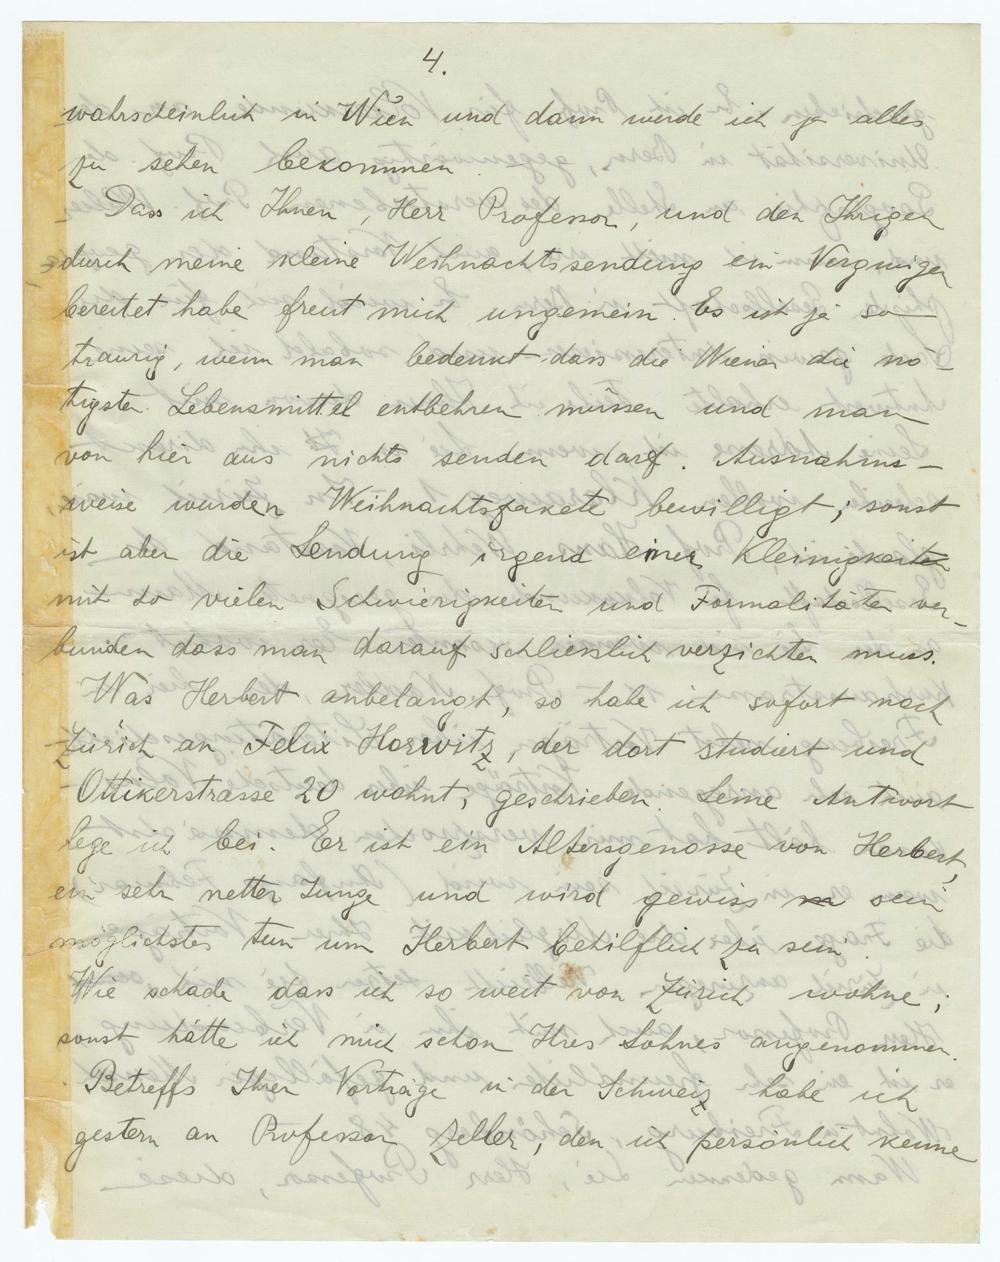 4.
wahrscheinlich in Wien und dann werde ich ja alles
zu sehen bekommen.
Dass ich Ihnen, Herr Professor, und den Ihrigen
durch meine kleine Weihnachtssendung ein Vergnügen
bereitet habe freut mich ungemein. Es ist ja so
traurig, wenn man bedenkt dass die Wiener die nö-
tigsten Lebensmittel entbehren müssen und man
von hier aus nichts senden darf. Ausnahms-
weise wurden Weihnachtspakete bewilligt; sonst
ist aber die Sendung irgend einer Kleinigkeiten
mit so vielen Schwierigkeiten und Formalitäten ver-
bunden dass man darauf schliesslich verzichten muss.
Was Herbert anbelangt, so habe ich sofort nach
Zürich an Felix Horwitz, der dort studiert und
Ottikerstrasse 20 wohnt, geschrieben. Seine Antwort
lege ich bei. Er ist ein Altersgenosse von Herbert,
ein sehr netter Junge und wird gewiss sein
möglichstes tun um Herbert behilflich zu sein.
Wie schade dass ich so weit von Zürich wohne;
sonst hätte ich mich schon Ihres Sohnes angenommen.
Betreffs Ihrer Vorträge in der Schweiz habe ich
gestern an Professor Zeller, den ich persönlich kenne